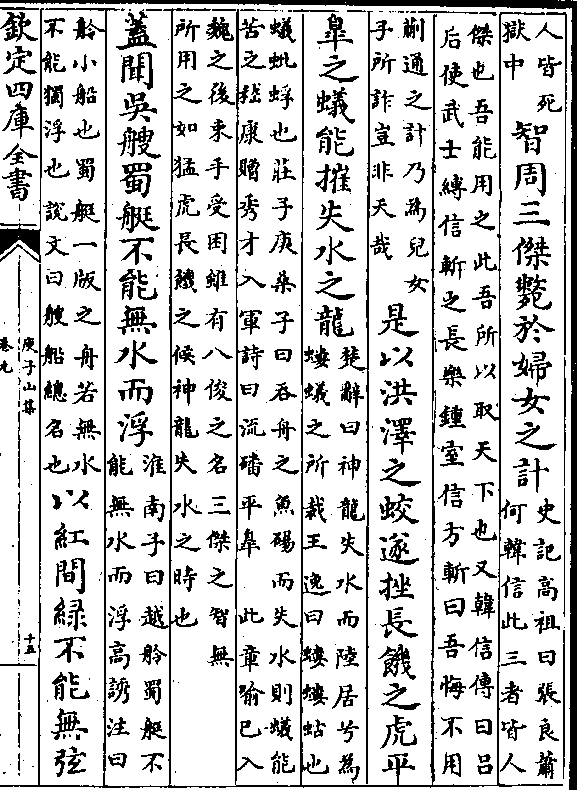 人皆死
獄中
智周三傑斃於婦女之計
史記高祖曰張良蕭
何韓信此三者皆人
傑也吾能用之此吾所以取天下也又韓信傳曰呂
后使武士縛信斬之長樂鍾室信方斬曰吾悔不用
蒯通之計乃為兒女
子所詐豈非天哉
是以洪澤之蛟遂挫長饑之虎平
臯之蟻能摧失水之龍
楚辭曰神龍失水而陸居兮為
螻蟻之所裁王逸曰螻螻蛄也
蟻蚍蜉也莊子庚桑子曰吞舟之魚碭而失水則蟻能
苦之嵇康贈秀才入軍詩曰流磻平臯 此章喻已入
魏之後束手受困雖有八俊之名三傑之智無
所用之如猛虎長饑之候神龍失水之時也
蓋聞吳艘蜀艇不能無水而浮
淮南子曰越舲蜀艇不
能無水而浮高誘注曰
舲小船也蜀艇一版之舟若無水
不能獨浮也說文曰艘船總名也
以紅間緑不能無弦
欽定四庫全書
庾子山集
卷九
十五